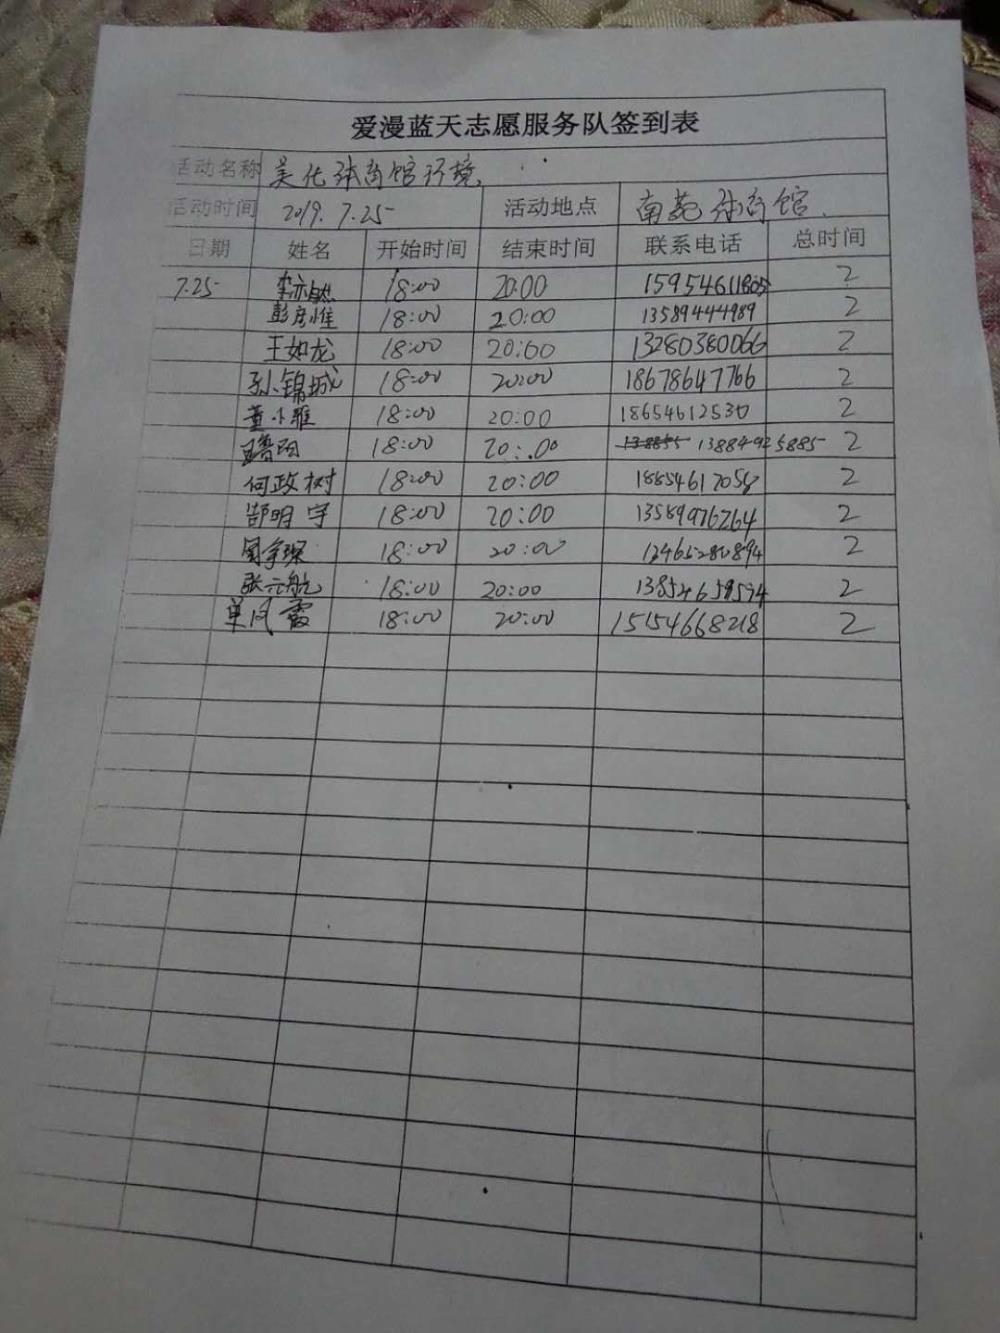 爱漫蓝天志愿服务队签到表
活动名称 美化体育馆环境
活动时间 2019.7.25 活动地点 南苑体育馆
日期 姓名 开始时间 结束时间 联系电话 总时间
7.25 李亦然 18:00 20:00 15954611805 2
彭彦惟 18:00 20:00 13589444989 2
王如龙 18:00 20:00 13280380066 2
孙锦城 18:00 20:00 18678647766 2
董小雅 18:00 20:00 18654612530 2
18:00 20:00 13884925885 2
何政树 18:00 20:00 18854617058 2
郜明宇 18:00 20:00 13589976264 2
18:00 20:00 2
张元航 18:00 20:00 13854659594 2
单凤霞 18:00 20:00 15154668218 2